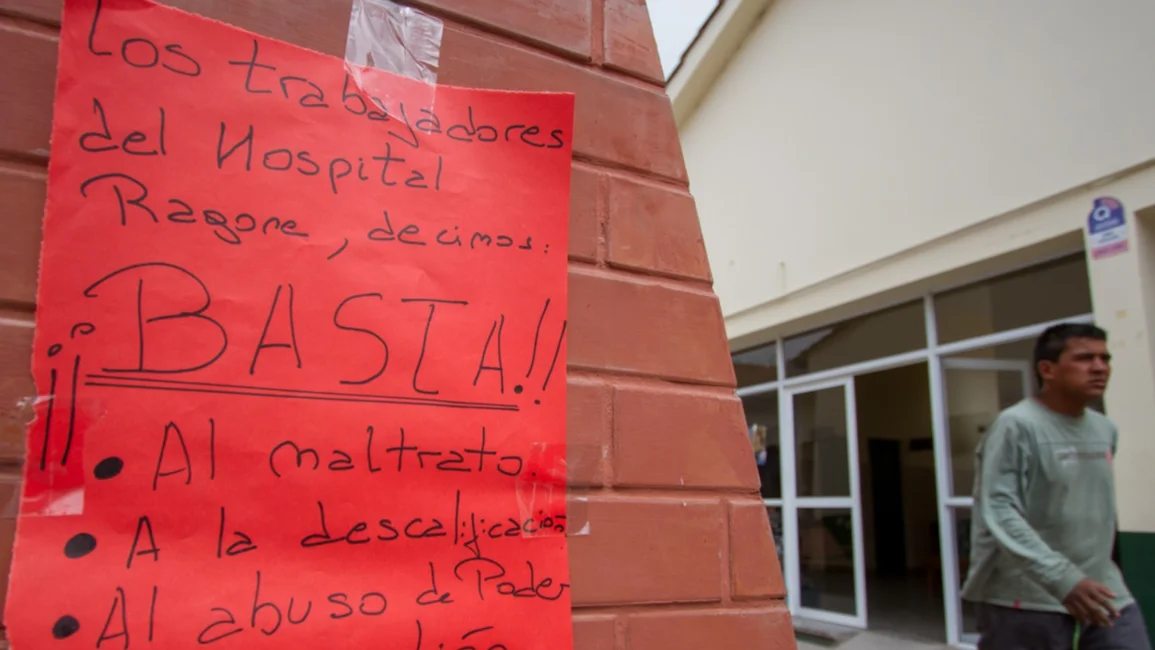 Los trabajadores
del Hospital
Ragone, decimos:
¡¡BASTA!!
• Al maltrato.
• A la descalificación
• Al abuso de Poder